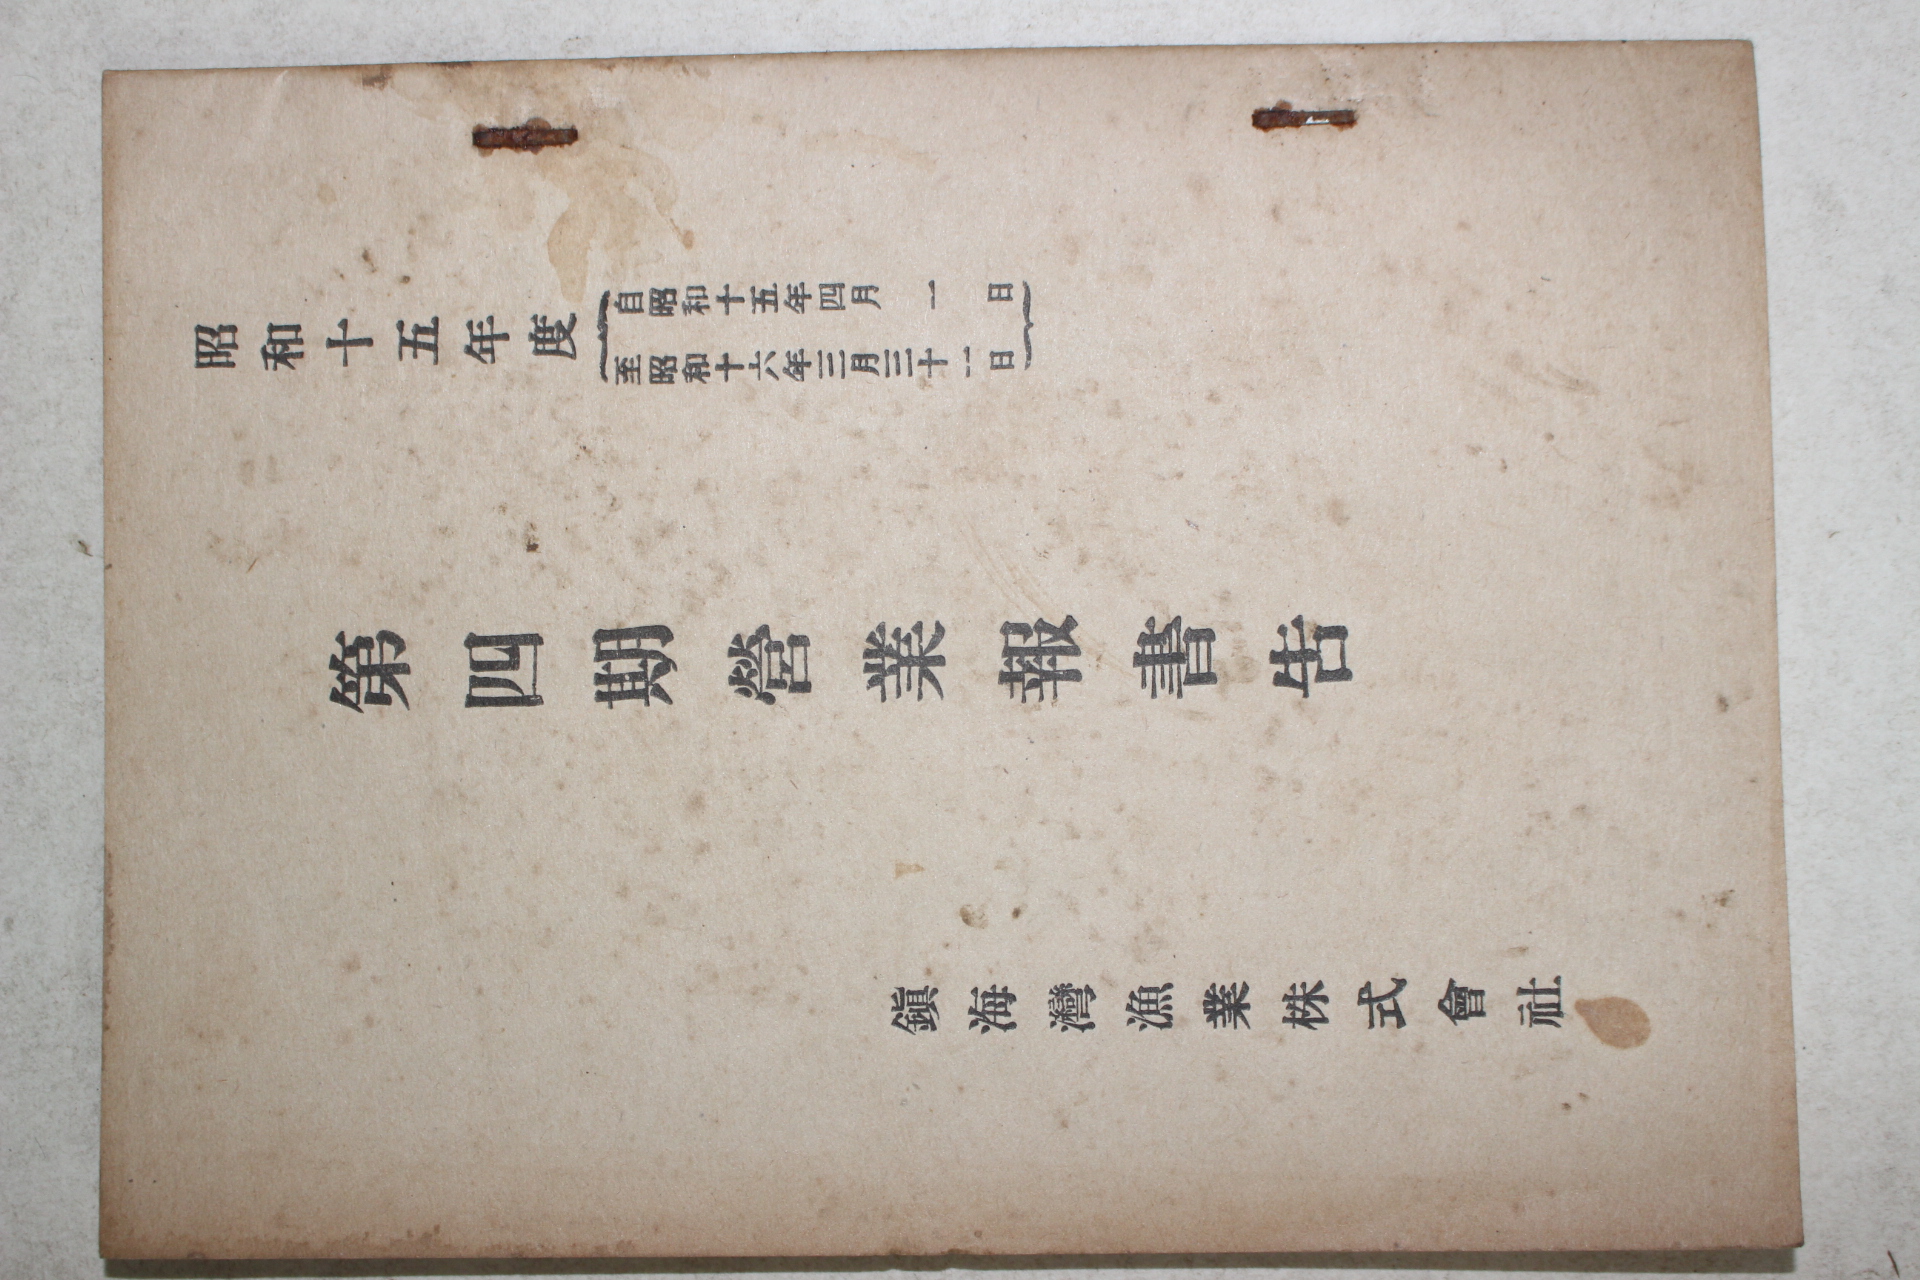 昭和十五年度
自昭和十五年四月一日
至昭和十六年三月三十一日
第四期營業報書告
鎭海灣漁業株式會社